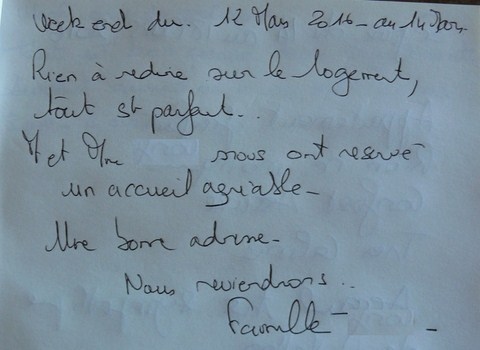 Week end du. 12 Mars 2016 - au 14 Mars.
Rien à redire sur le logement,
tout est parfait...
M et Mme nous ont réservé
un accueil agréable -
Une bonne adresse -
Nous reviendrons..
Famille -